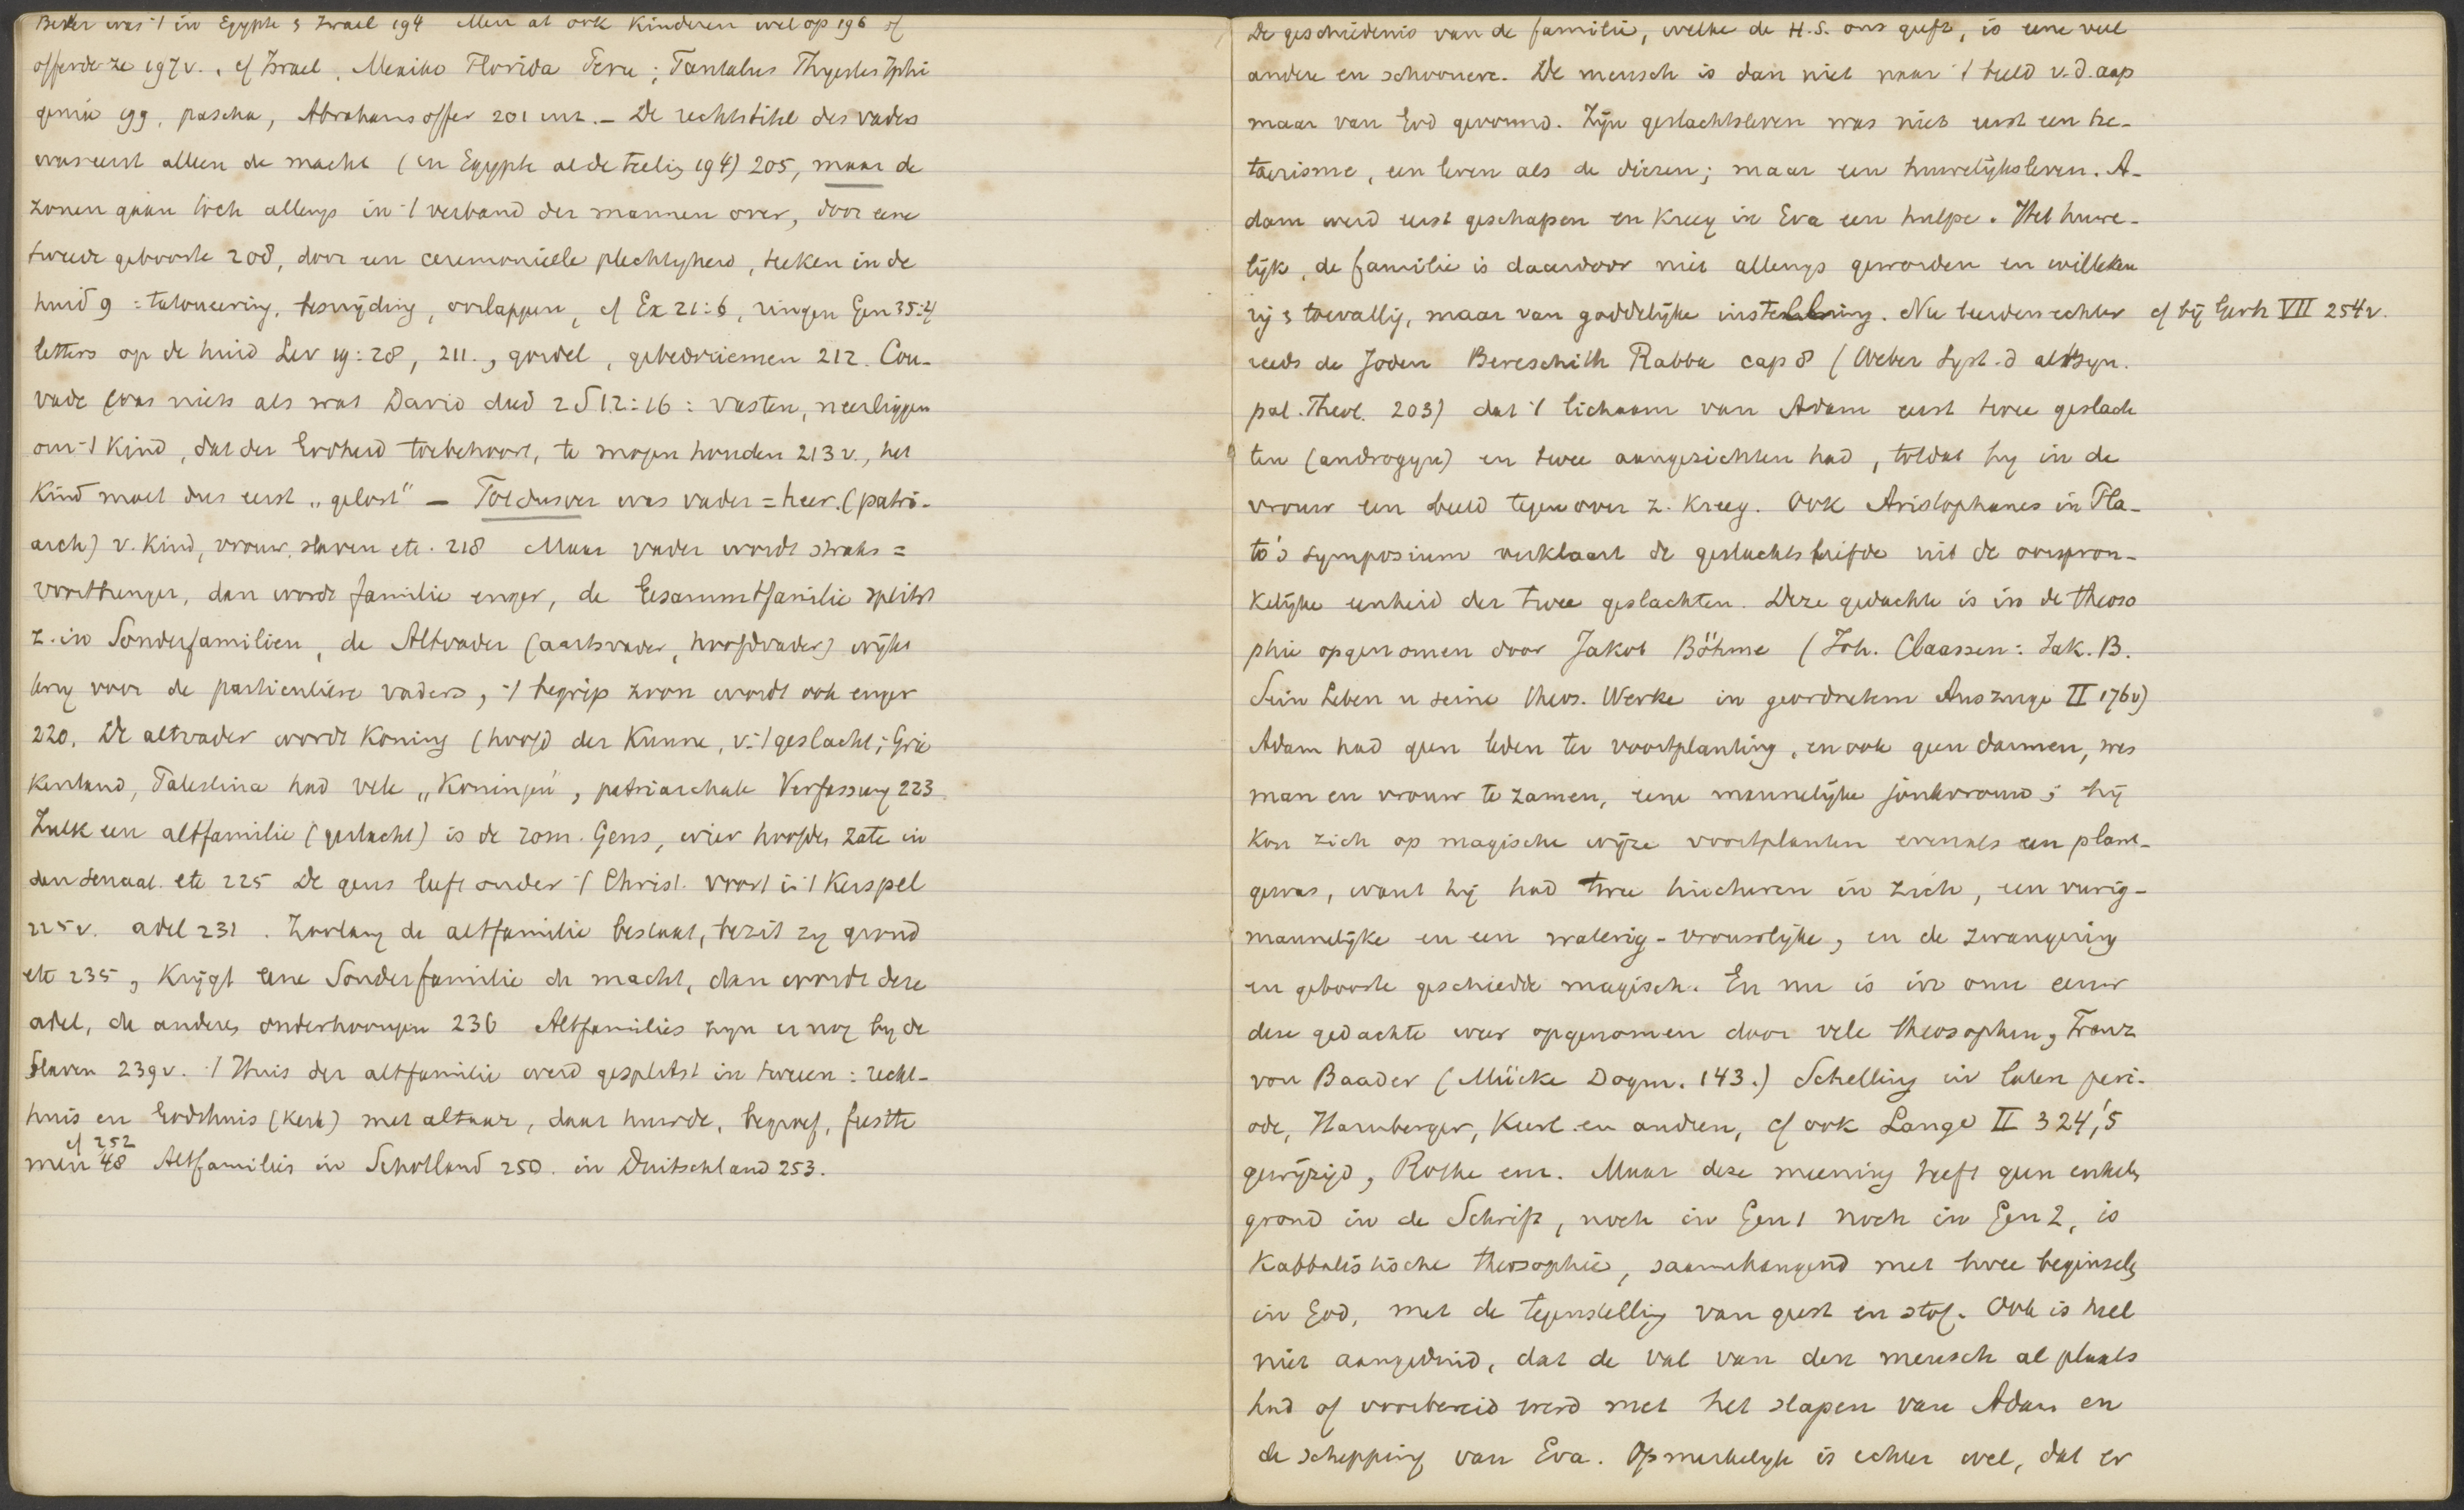 Beter was 't in Egypte & Israel 194 Men at ook Kinderen wel op 196 of
offerde ze 197v., cf Israel, Mexiko Florida Peru; Tantalus Thyestes Iphi
genia 199, pascha, Abrahams offer 201 enz. – De rechtstitel des vaders
was eerst alleen de macht (in Egypte al de teeling 194) 205, maar de
zonen gaan toch allengs in 't verband der mannen over, door eene
tweede geboorte 208, door een ceremonieele plechtigheid, teeken in de
huid 9 = tatoueering, besnijding, oorlappen, cf Ex 21:6, ringen Gen 35:4
letters op de huid Lev 19:28, 211., gordel, gebedsriemen 212. Cou-
vade was niets als wat David deed 2 S 12:16: vasten, neerliggen
om 't Kind, dat der Godheid toebehoort, te mogen houden 213 v., het
Kind moet dus eerst „gelost" – Toe dusver was vader = heer. (patri-
arch) v. Kind, vrouw, slaven etc. 218 Maar vader wordt straks =
voortbrenger, dan wordt familie enger, de Gesammtfamilie splitst
z. in Sonderfamilien, de Altvader (aartsvader, hoofdvader) wijkt
terug voor de particuliere vaders, 't begrip zoon wordt ook enger
220. De altvader wordt Koning (hoofd der Kunne, v. 't geslacht; Grie
kenland, Palestina had vele „Koningen", patriarchale Verfassung 223
Zulk een altfamilie (geslacht) is de rom. Gens, wier hoofden zaten in
den senaat. etc 225 De gens leeft onder 't Christ. voort in 't Kerspel
225 v. adel 231. Zoolang de altfamilie bestaat, bezit zij grond
etc 235, Krijgt eene Sonderfamilie de macht, dan wordt deze
adel, de andere, onderhoorigen 236 Altfamilies zijn er nog bij de
Slaven 239 v. 't Huis der altfamilie werd gesplitst in tweeen: recht-
huis en Godshuis (Kerk) met altaar, daar huwde, begroef, feestte
cf 252
men 48 Altfamilies in Schotland 250. in Duitschland 253.
De geschiedenis van de familie, welke de H.S. ons geeft, is eene veel
andere en schoonere. De mensch is dan niet naar 't beeld v. d. aap
maar van God gevormd. Zijn geslachtsleven was niet eerst een he-
taerisme, een leven als de dieren; maar een huwelijksleven. A-
dam werd eerst geschapen en Kreeg in Eva een hulpe. Het huwe-
lijk, de familie is daardoor niet allengs geworden en willekeu
rig & toevallig, maar van goddelijke instelling. Nu leerden echter cf bij Gerh VII 254v.
reeds de Joden Bereschith Rabba cap 8 (Weber Syst. d altsyn.
pal. Theol. 203) dat 't lichaam van Adam eerst twee geslach
ten (androgyn) en twee aangezichten had, totdat hij in de
vrouw een beeld tegenover z. Kreeg. Ook Aristophanes in Pla-
to's symposium verklaart de geslachtsliefde uit de oorspron-
kelijke eenheid der twee geslachten. Deze gedachte is in de theoso
phie opgenomen door Jakob Böhme (Joh. Claassen: Jak. B.
Sein Leben u seine theos. Werke in geordnetem Auszuge II 176v)
Adam had geen leden ter voortplanting, en ook geen darmen, was
man en vrouw te zamen, eene mannelijke jonkvrouw; hij
kon zich op magische wijze voortplanten evenals een plant-
gewas, want hij had twee tincturen in zich, een vurig-
mannelijke en een waterig-vrouwelijke, en de zwangering
en geboorte geschiedde magisch. En nu is in onze eeuw
deze gedachte weer opgenomen door vele theosophen, Franz
von Baader (Mücke Dogm. 143.) Schelling in laten peri-
ode, Hamberger, Keerl en anderen, cf ook Lange II 324,'5
gewijzigd, Rothe enz. Maar deze meening heeft geen enkele
grond in de Schrift, noch in Gen 1 noch in Gen 2, is
Kabbalistische theosophie, saamhangend met twee beginsels
in God, met de tegenstelling van geest en stof. Ook is heel
niet aangeduid, dat de val van den mensch al plaats
had of voorbereid werd met het slapen van Adam en
de schepping van Eva. Opmerkelijk is echter wel, dat er